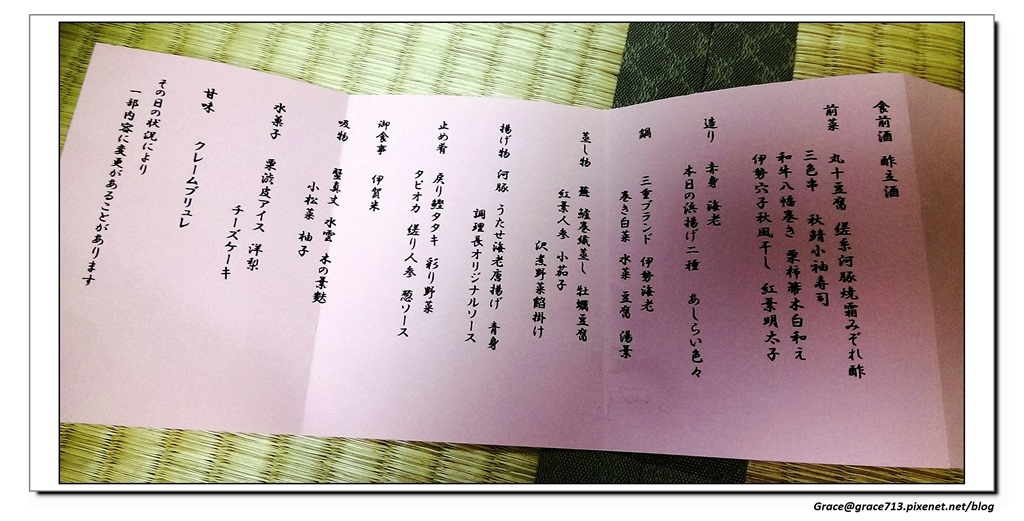 食前酒 酢立酒
前菜 丸十豆腐 縒糸河豚焼霜みぞれ酢
三色串 秋鯖小袖寿司
和牛八幡巻き 栗柿薯木白和え
伊勢穴子秋風干し 紅葉明太子
造り 赤身 海老
本日の浜揚げ二種 あしらい色々
鍋 三重ブランド 伊勢海老
巻き白菜 水菜 豆腐 湯葉
蒸し物 蕪 鰻巻繊蒸し 牡蠣豆腐
紅葉人参 小茄子
沢煮野菜餡掛け
揚げ物 河豚 うたせ海老唐揚げ 青身
調理長オリジナルソース
止め肴 戻り鰹タタキ 彩り野菜
タピオカ 縒り人参 葱ソース
御食事 伊賀米
吸物 蟹真丈 水雲 木の葉麩
小松菜 柚子
水菓子 栗渋皮アイス 洋梨
チーズケーキ
甘味 クレームブリュレ
その日の状況により
一部内容に変更があることがあります
Grace@grace713.pixnet.net/blog